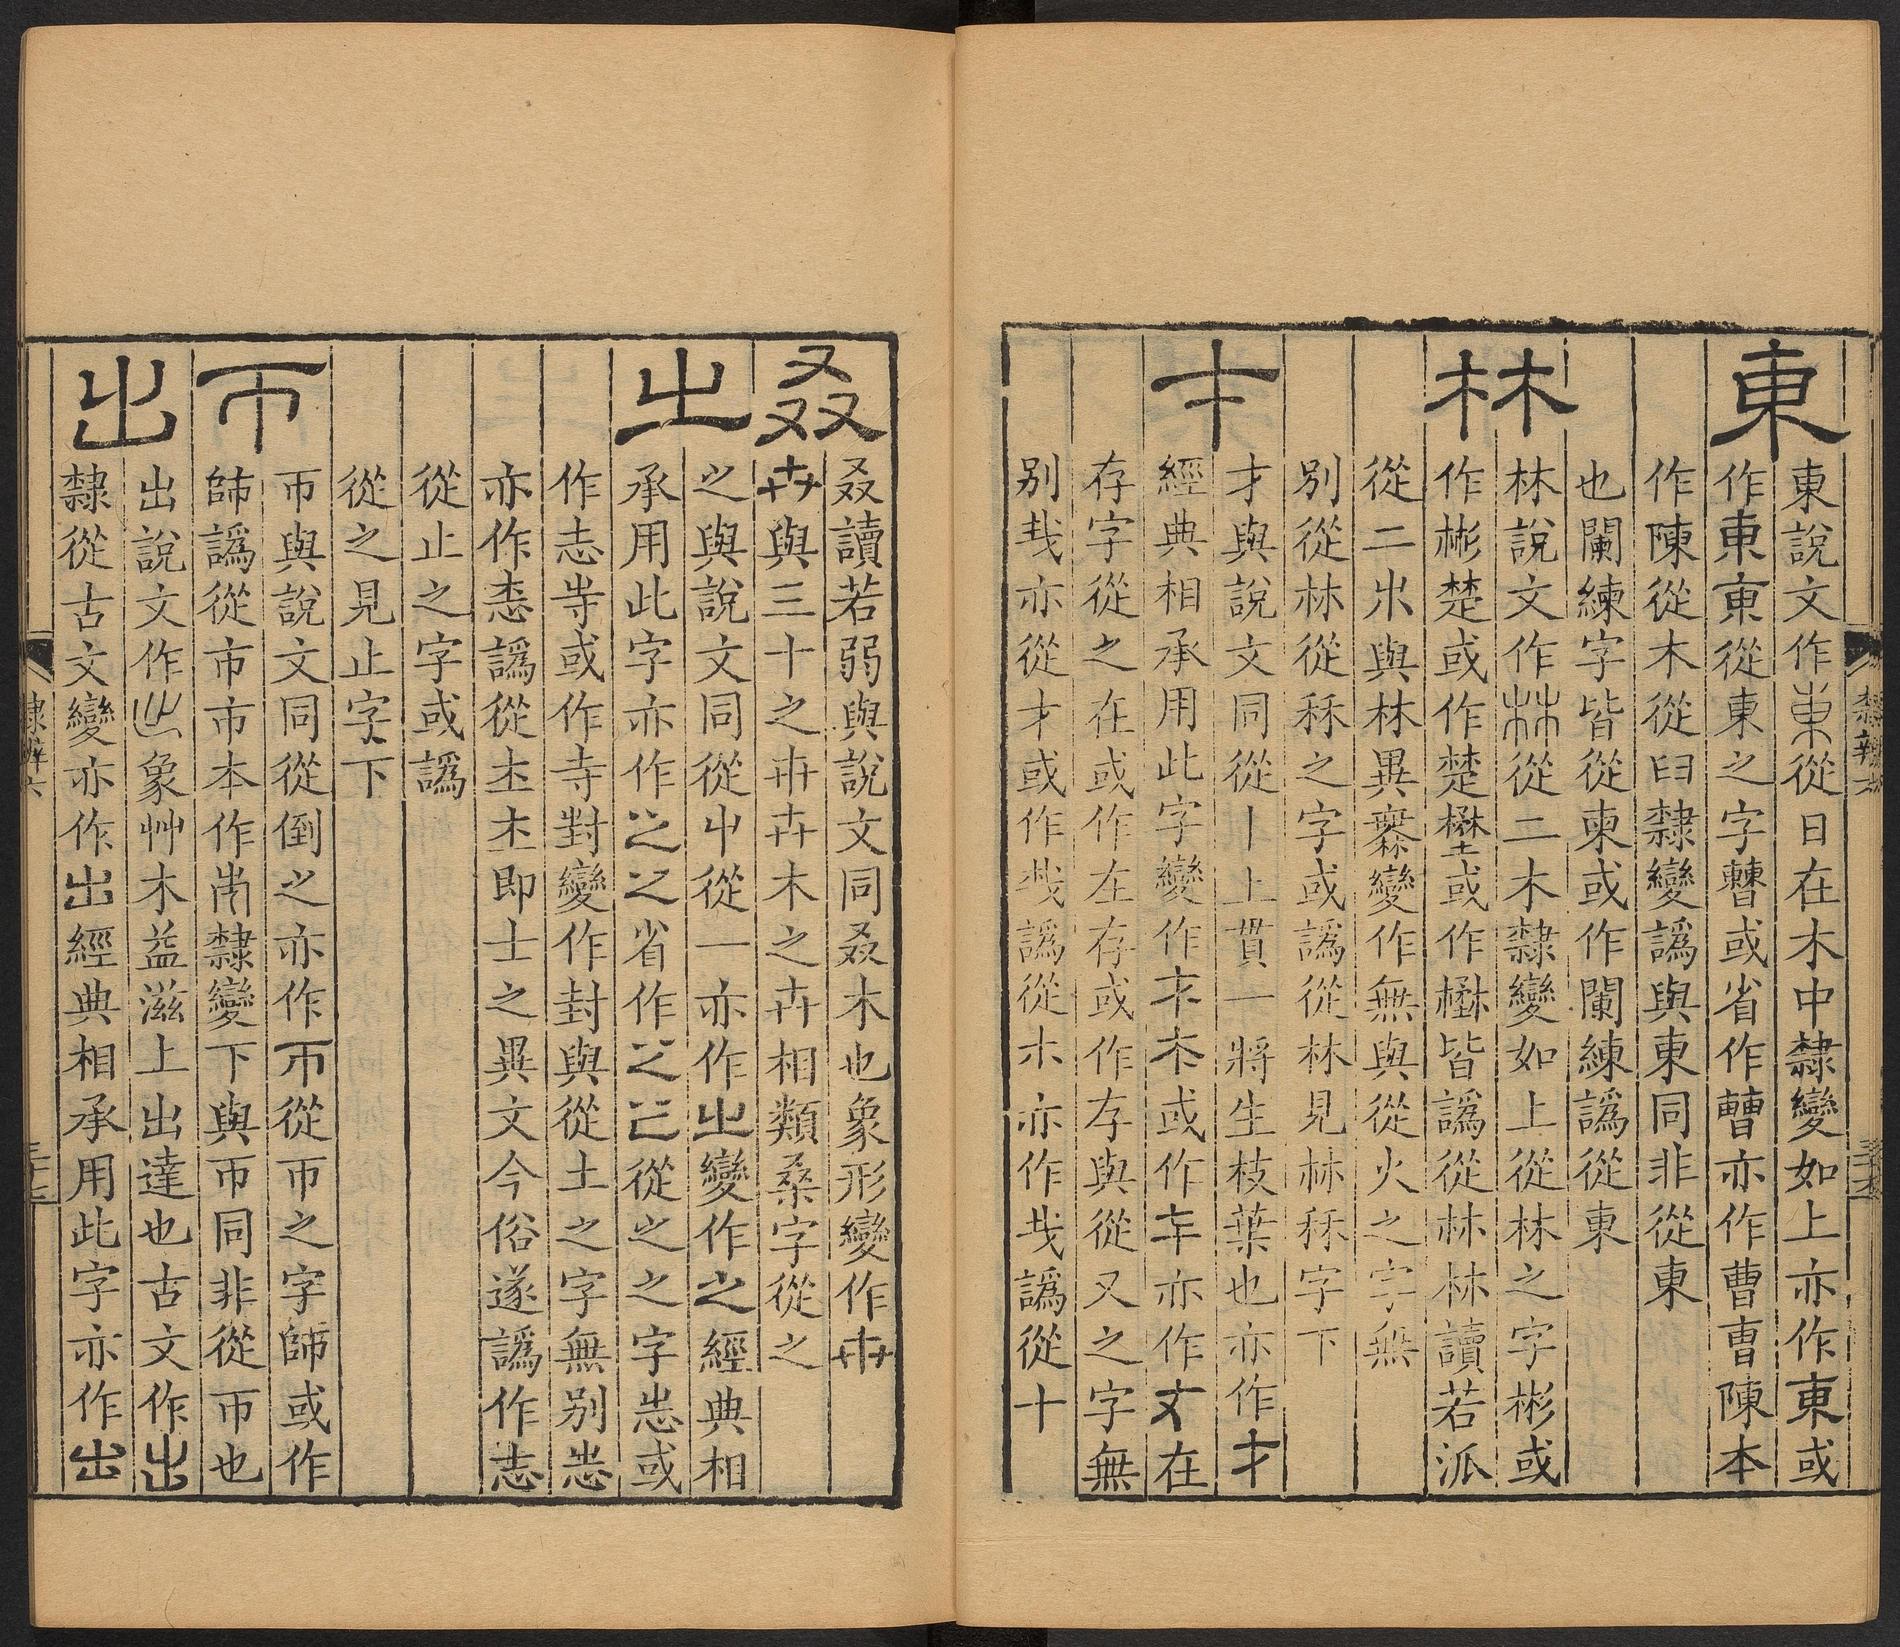 東
東說文作𣐩從日在木中隸變如上亦作東或
作東東從東之字曹或省作曹亦作曹曺陳本
作陳從木從臼隸變譌與東同非從東
也闌練字皆從柬或作闌練譌從東
林
林說文作林從二木隸變如上從林之字彬或
作彬楚或作楚壄或作楙皆譌從林林讀若派
從二朩與林異𣞤變作無與從火之字無
別從林從秝之字或譌從林見林秝字下
才
才與說文同從丨上貫一將生枝葉也亦作才
經典相承用此字變作才木或作㐄亦作丈在
存字從之在或作在存或作存與從又之字無
別𢦏亦從才或作𢦏譌從木亦作𢦏譌從十
叒
叒讀若弱與說文同叒木也象形變作卉
卉與三十之卅卉木之卉相類桑字從之
㞢
之與說文同從屮從一亦作㞢變作之經典相
承用此字亦作㞢之省作之从之之字志或
作志寺或作寺對變作封與從土之字無別志
亦作志譌從士士即士之異文今俗遂譌作志
從止之字或譌
從之見止字下
帀
帀與說文同從倒之亦作帀從帀之字師或作
師譌從市市本作𣎵隸變下與帀同非從帀也
出
出說文作㞢象艸木益滋上出達也古文作出
隸從古文變亦作出經典相承用此字亦作出
隸辨六